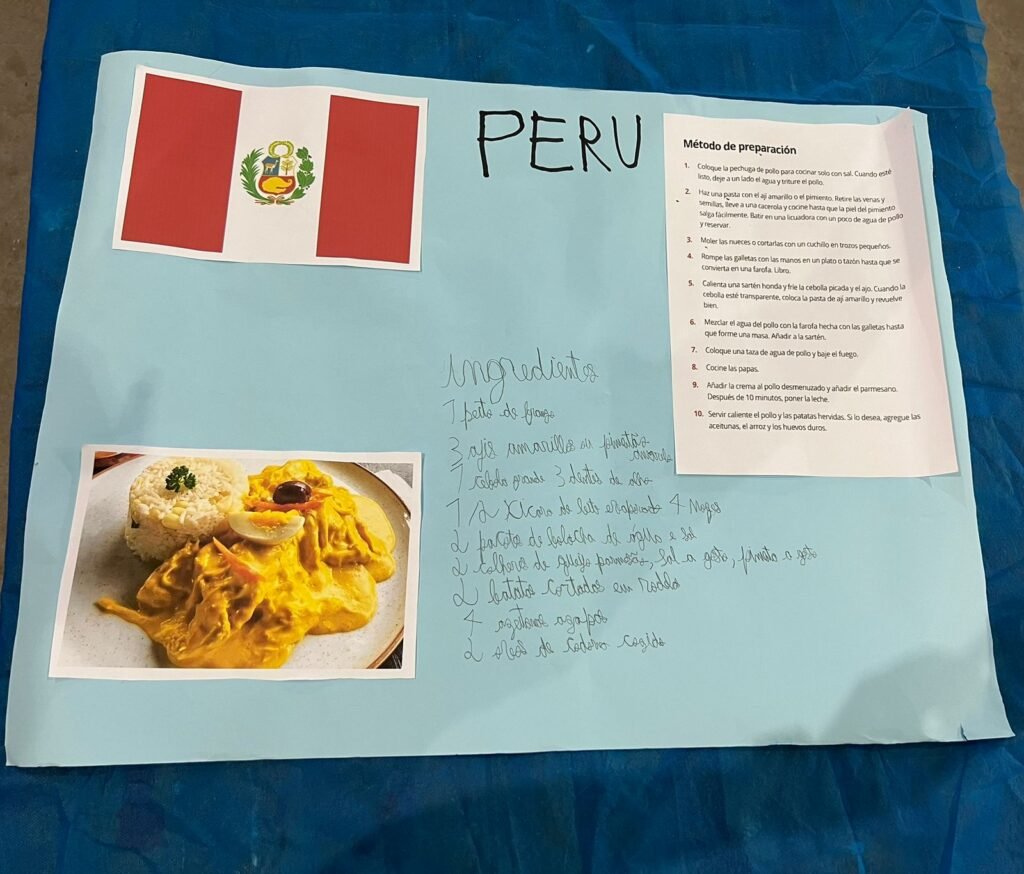 PERU
Método de preparación
1. Coloque la pechuga de pollo para cocinar solo con sal. Cuando esté
listo, deje a un lado el agua y triture el pollo.
2. Haz una pasta con el ají amarillo o el pimiento. Retire las venas y
semillas, lleve a una cacerola y cocine hasta que la piel del pimiento
salga fácilmente. Batir en una licuadora con un poco de agua de pollo
y reservar.
3. Moler las nueces o cortarlas con un cuchillo en trozos pequeños.
4. Rompe las galletas con las manos en un plato o tazón hasta que se
convierta en una farofa. Libro.
5. Calienta una sartén honda y fríe la cebolla picada y el ajo. Cuando la
cebolla esté transparente, coloca la pasta de ají amarillo y revuelve
bien.
6. Mezclar el agua del pollo con la farofa hecha con las galletas hasta
que forme una masa. Añadir a la sartén.
7. Coloque una taza de agua de pollo y baje el fuego.
8. Cocine las papas.
9. Añadir la crema al pollo desmenuzado y añadir el parmesano.
Después de 10 minutos, poner la leche.
10. Servir caliente el pollo y las patatas hervidas. Si lo desea, agregue las
aceitunas, el arroz y los huevos duros.
Ingredientes
1 peito de frango
3 ajis amarillos ou pimentão
amarelo
1 cebola grande 3 dentes de alho
1/2 xicara de leite evaporado 4 nozes
2 pacotes de bolacha de água e sal
2 colheres de queijo parmesão, sal a gosto, pimenta a gosto
2 batatas cortadas em rodela
4 azeitonas
2 ovos de codorna cozido